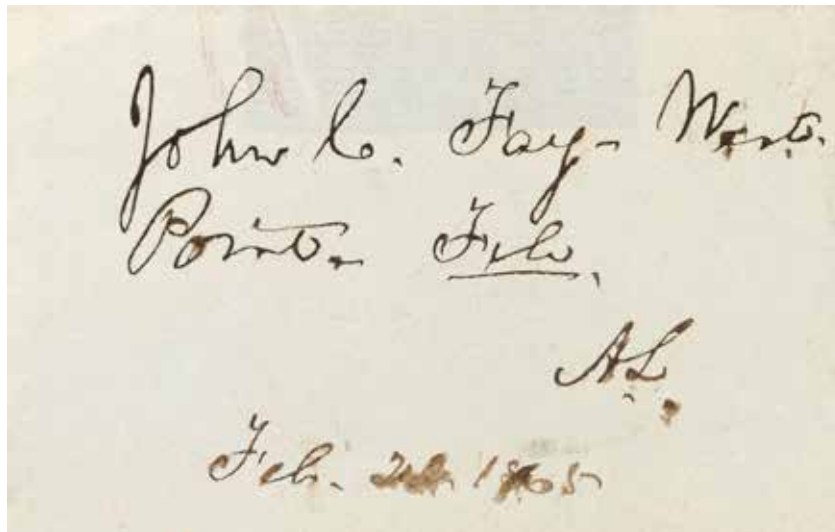 John C. Fay - West.
Point. File.
A.L.
Feb. 1865